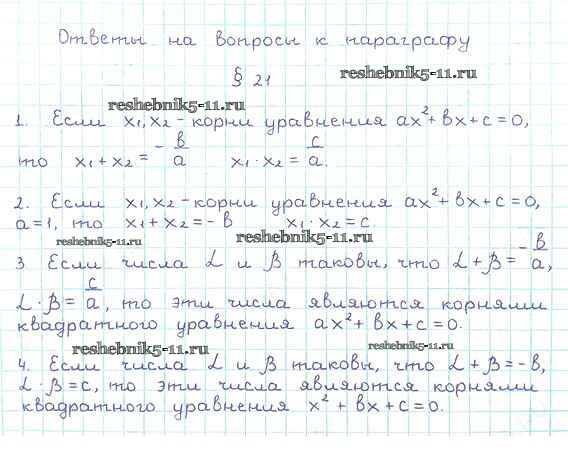 Ответы на вопросы к параграфу
§ 21
reshebnik5-11.ru
reshebnik5-11.ru
1. Если x₁, x₂ - корни уравнения ax² + bx + c = 0,
то x₁ + x₂ = -b/a x₁ · x₂ = c/a.
2. Если x₁, x₂ - корни уравнения ax² + bx + c = 0,
a = 1, то x₁ + x₂ = - b x₁ · x₂ = c.
reshebnik5-11.ru
reshebnik5-11.ru
3 Если числа α и β таковы, что α + β = -b/a,
α · β = c/a, то эти числа являются корнями
квадратного уравнения ax² + bx + c = 0.
reshebnik5-11.ru
reshebnik5-11.ru
4. Если числа α и β таковы, что α + β = - b,
α · β = c, то эти числа являются корнями
квадратного уравнения x² + bx + c = 0.